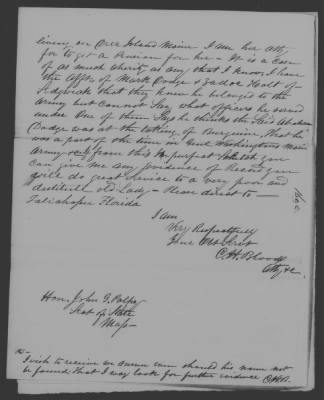 living on Deer Island Maine I am her atty
for to get a Pension for her - It is a case
of as much charity as any that I know, I have
the Affts of Mark Dodge & Zadoc Heall of
Sedgwick that they knew he belonged to the
Army but cannot say what officers he served
under One of them says he thinks the said Abraham
Dodge was at the taking of Burgoine, that he
was a part of the time in Genl Washingtons Main
Army - & if from this imperfect Sketch you
can give me any Evidence of Record you
will do great service to a very poor and
destitute old Lady - Please direct to -
Talahapee Florida
I am
Very Respectfully
Your Obt Servt
C. H. Blood
Atty &c
Hon. John G. Palfrey
Secty of State
Mass -
I wish to receive an answer even should his name not
be found that I may look for further evidence C.H.B.